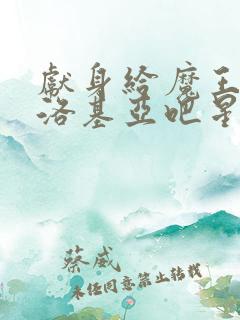 獻身給魔王
洛基亞吧星
蔡威
未經同意禁止轉載